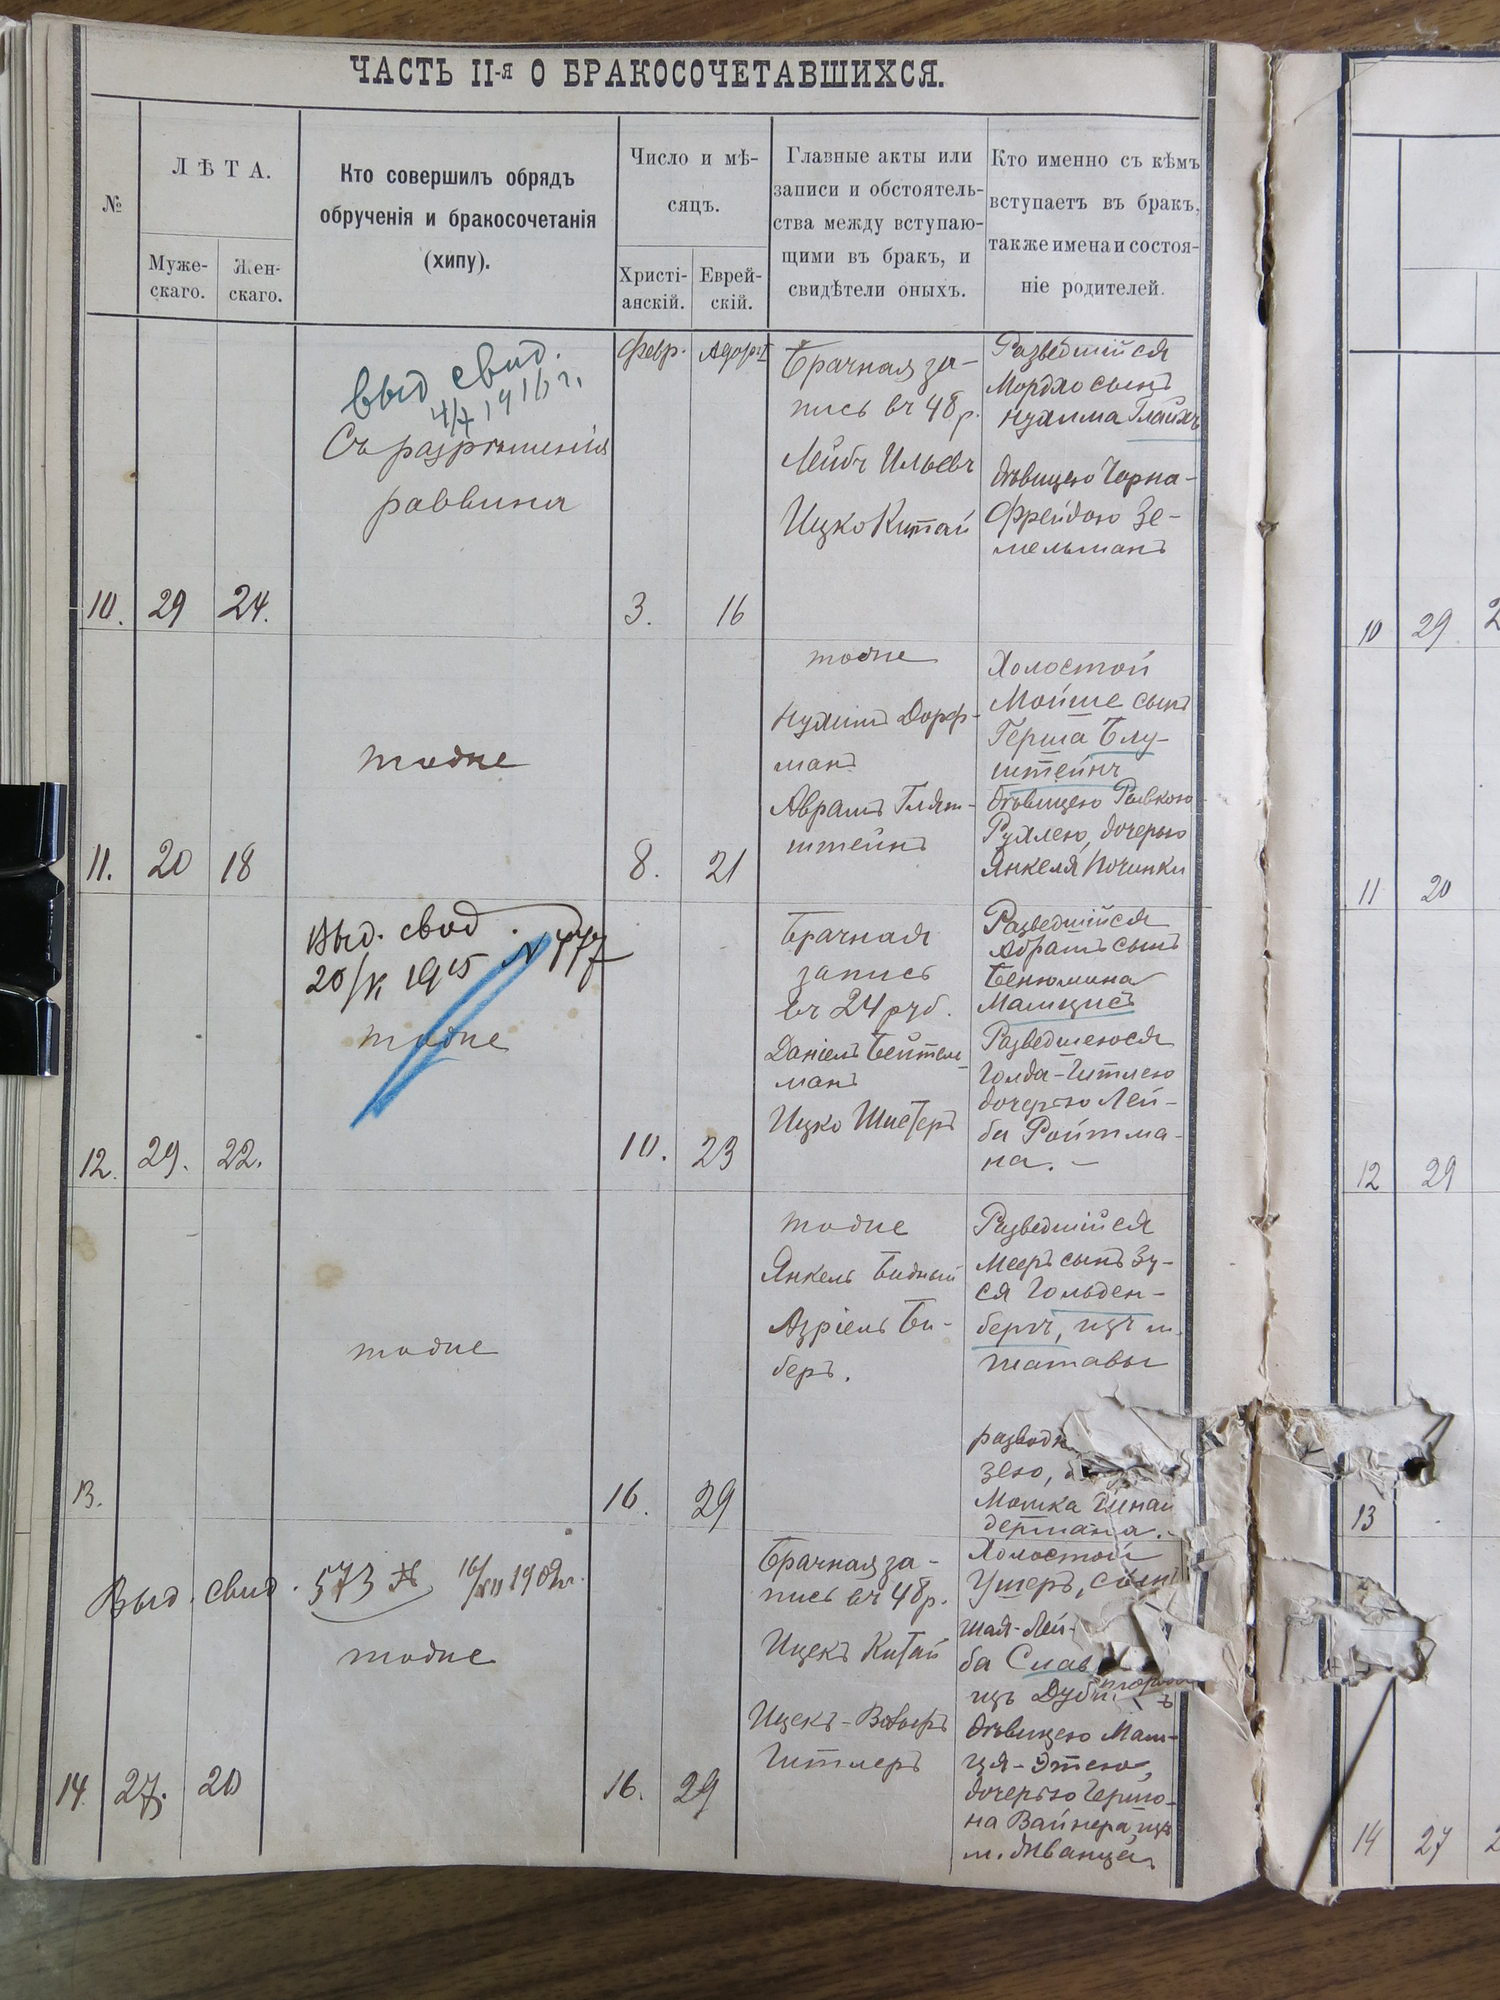 ЧАСТЬ II-я О БРАКОСОЧЕТАВШИХСЯ.
№
ЛѢТА.
Муже-
скаго.
Жен-
скаго.
Кто совершилъ обрядъ
обрученія и бракосочетанія
(хипу).
Число и мѣ-
сяцъ.
Христі-
анскій.
Еврей-
скій.
Главные акты или
записи и обстоятель-
ства между вступаю-
щими въ бракъ, и
свидѣтели оныхъ.
Кто именно съ кѣмъ
вступаетъ въ бракъ,
также имена и состоя-
ніе родителей.
выд свид.
Съ разрѣшенія
раввина
10.
29
24.
Февр.
3.
16
Брачная за-
пись въ 48 р.
Лейбъ Ильевъ
Ицко Китай
Разведшійся
Мордхо сынъ
Нухима Глайхъ
дѣвицею Чарна-
Фрейдою Зе-
мельманъ
11.
20
18
тоже
8.
21
тоже
Нухимъ Дорф-
манъ
Аврамъ Глят-
штейнъ
Холостой
Мойше сынъ
Герша Блу-
штейнъ
дѣвицею Ривкою
Рухлею, дочерью
Янкеля Починки
Выд. свид.
20/ 1915 №
тоже
12.
29.
22.
10.
23
Брачная
запись
въ 24 руб.
Даніель Бейтель-
манъ
Ицко Шистеръ
Разведшійся
Абрамъ сынъ
Бенюмина
Малицисъ
Разведшеюся
Голда-Гитлею
дочерью Лей-
ба Ройтма-
на. –
13.
тоже
16.
29
тоже
Янкель Бидный
Азріель Би-
беръ.
Разведшійся
Мееръ сынъ Зу-
ся Гольден-
бергъ, изъ м.
Шатавы
зею,
Мошка
дермана.
Выд. свид. 573 16/XII 190
тоже
14.
27.
20
16.
29
Брачная за-
пись въ 48 р.
Ицекъ Китай
Ицекъ-Вольфъ
Гитлеръ
Холостой
Ушеръ, сынъ
Шая-Лей-
ба Слав
изъ
дѣвицею Мат-
ця-Этею,
дочерью Гершо-
на Вайнера, изъ
м. Жванца
10
29
11
20
12
29
13
14
27